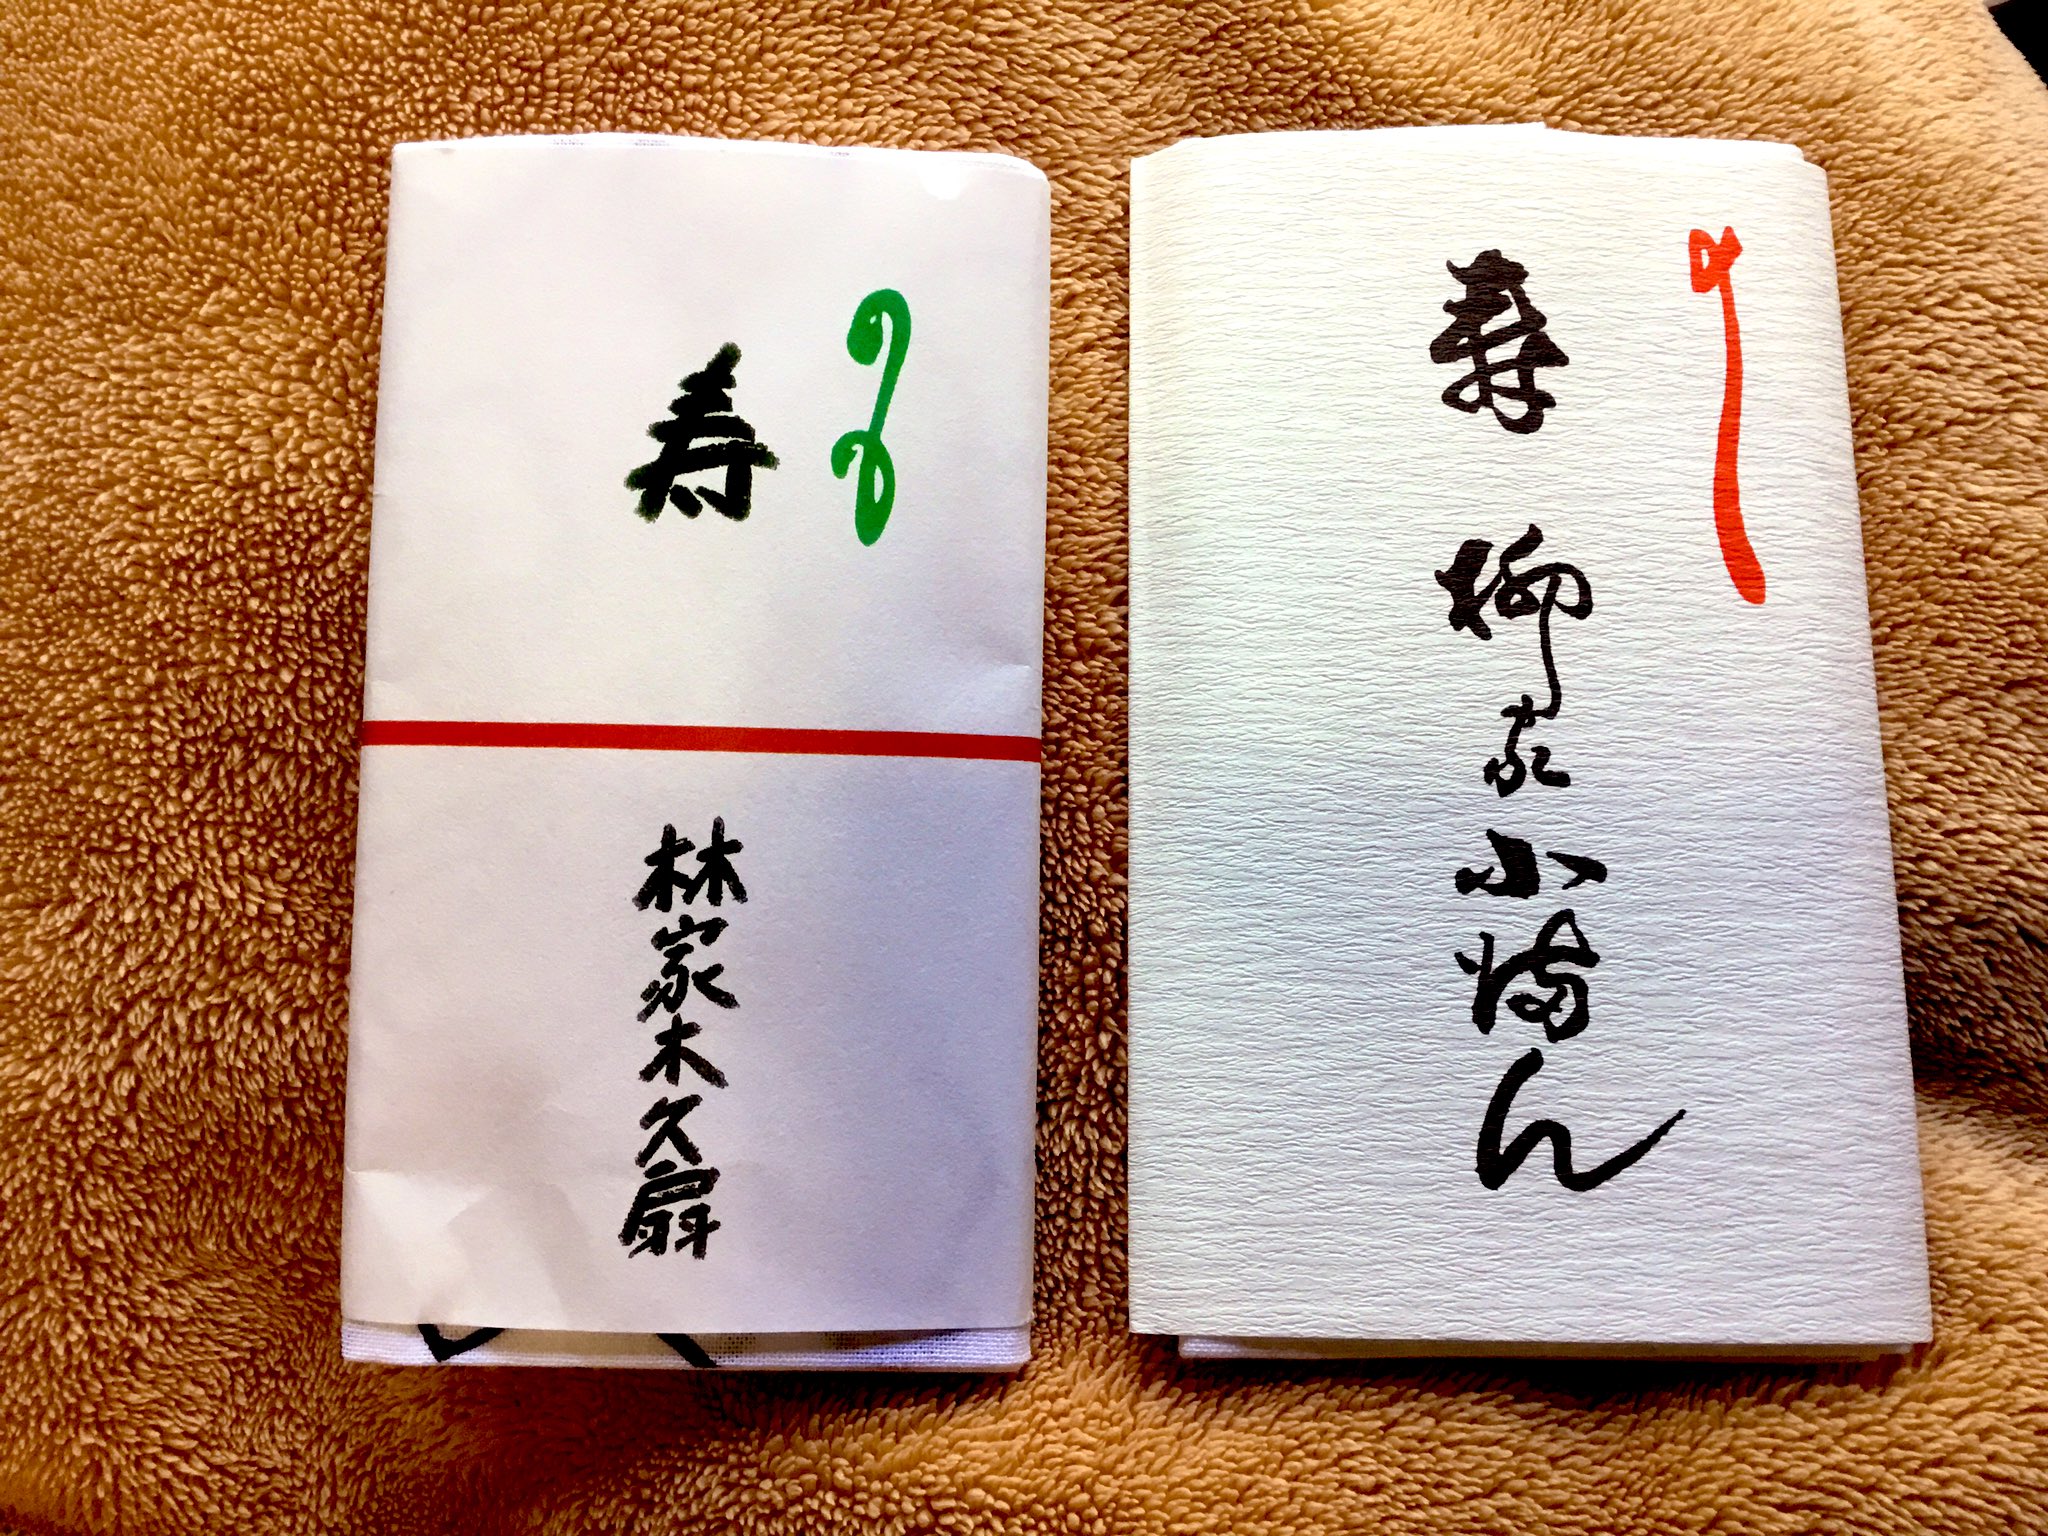 寿
林家木久扇
寿
柳家小満ん